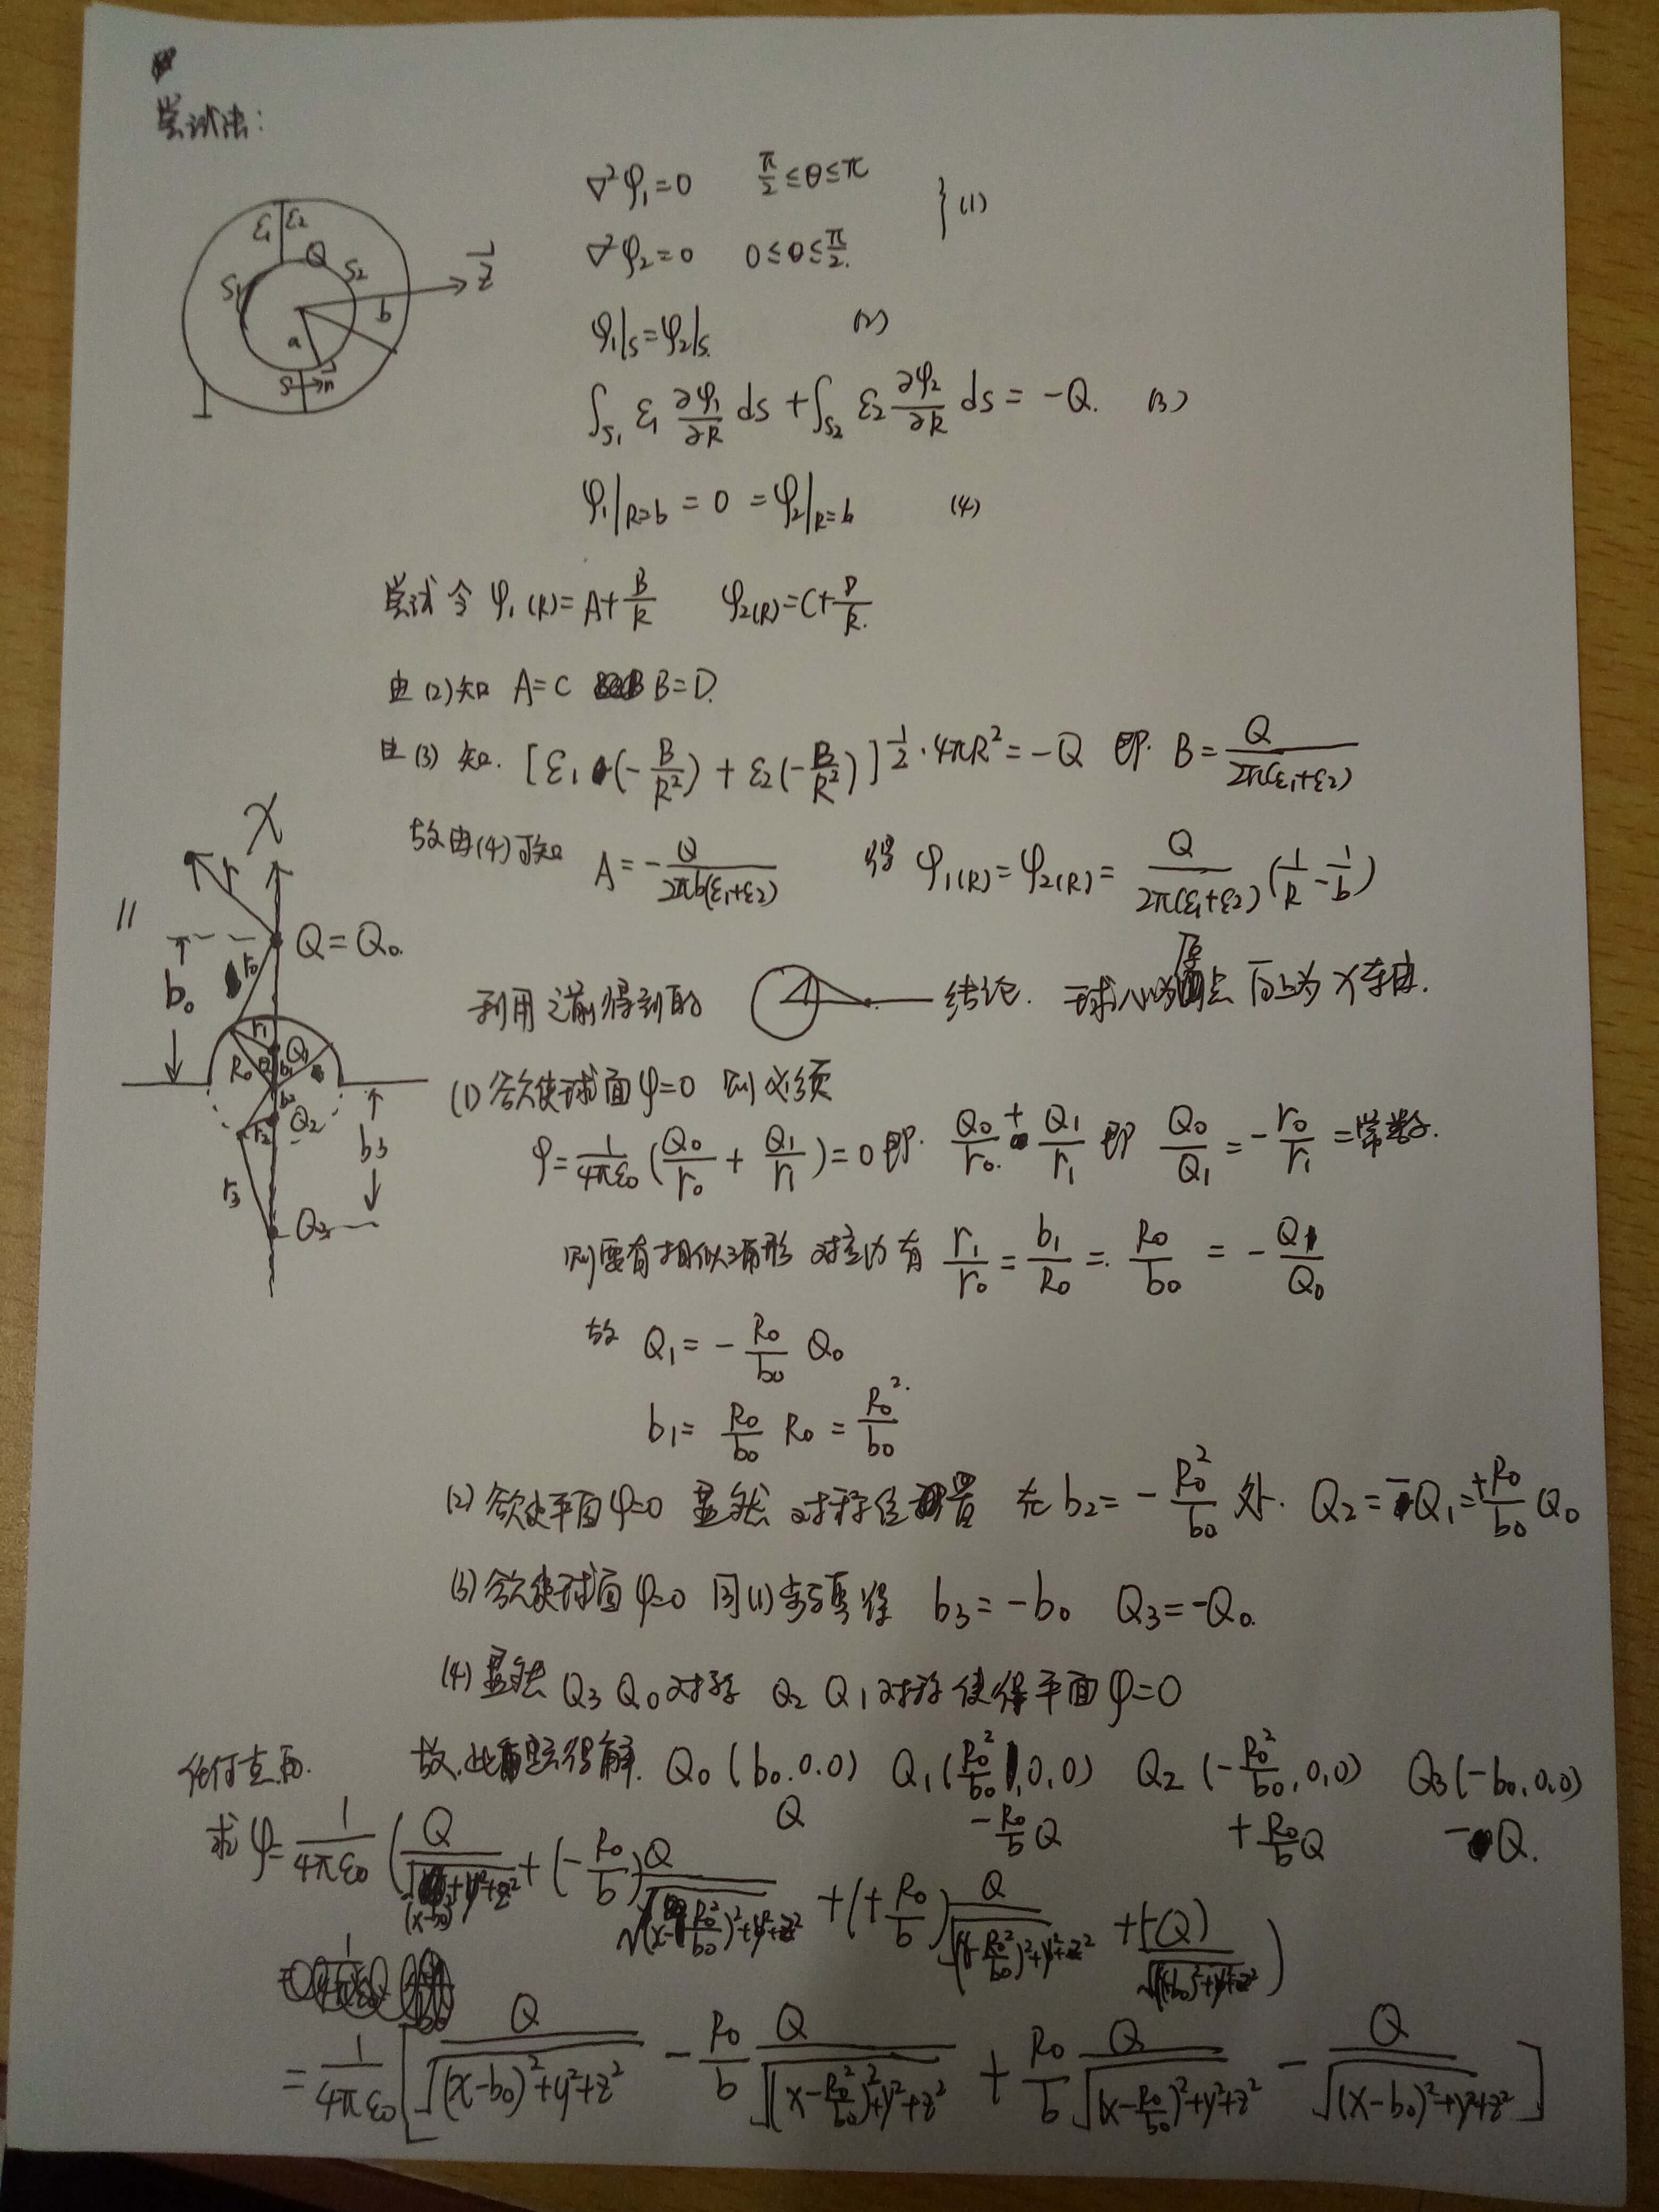 尝试法:
ε₁ ε₂
Q
S₁ S₂
z
a b
S n
∇²φ₁=0 π/2≤θ≤π
} (1)
∇²φ₂=0 0≤θ≤π/2.
φ₁|s=φ₂|s. (2)
∫s₁ ε₁ ∂φ₁/∂R ds + ∫s₂ ε₂ ∂φ₂/∂R ds = -Q. (3)
φ₁|R=b = 0 = φ₂|R=b (4)
尝试令 φ₁(R)=A+B/R φ₂(R)=C+D/R.
由(2)知 A=C B=D.
由(3)知. [ε₁(-B/R²) + ε₂(-B/R²)]1/2·4πR²=-Q 即. B=Q/2π(ε₁+ε₂)
故由(4)可知 A=-Q/2πb(ε₁+ε₂) 得 φ₁(R)=φ₂(R)=Q/2π(ε₁+ε₂) (1/R-1/b)
11
x
r
Q=Q₀.
b₀ r₀
r₁ Q₁
R₀ b₁
b₂
r₂ Q₂
b₃
r₃
Q₃
利用之前得到的 结论. 球心为原点 向上为x轴.
(1) 欲使球面φ=0 则必须
φ=1/4πε₀ (Q₀/r₀ + Q₁/r₁)=0 即. Q₀/r₀ + Q₁/r₁ 即 Q₀/Q₁=-r₀/r₁=常数.
则要有相似三角形 对应边有 r₁/r₀=b₁/R₀=R₀/b₀ = -Q₁/Q₀
故 Q₁=-R₀/b₀ Q₀
b₁= R₀/b₀ R₀ = R₀²/b₀
(2) 欲使平面φ=0 显然 对称位置 在 b₂=-R₀²/b₀ 处. Q₂=-Q₁=+R₀/b₀ Q₀
(3) 欲使球面φ=0 同(1)步骤得 b₃=-b₀ Q₃=-Q₀.
(4) 显然 Q₃ Q₀对称 Q₂ Q₁对称 使得平面φ=0
任何点的. 故.此题得解. Q₀(b₀.0.0) Q₁(R₀²/b₀,0,0) Q₂(-R₀²/b₀,0,0) Q₃(-b₀,0,0)
Q -R₀/b Q +R₀/b Q -Q.
求φ=1/4πε₀ (Q/√(x-b₀)²+y²+z² + (-R₀/b)Q/√(x-R₀²/b₀)²+y²+z² + (+R₀/b)Q/√(x-R₀²/b₀)²+y²+z² + (-Q)/√(x+b₀)²+y²+z²)
=1/4πε₀ [Q/√(x-b₀)²+y²+z² - R₀/b Q/√(x-R₀²/b₀)²+y²+z² + R₀/b Q/√(x-R₀/b₀)²+y²+z² - Q/√(x-b₀)²+y²+z²]